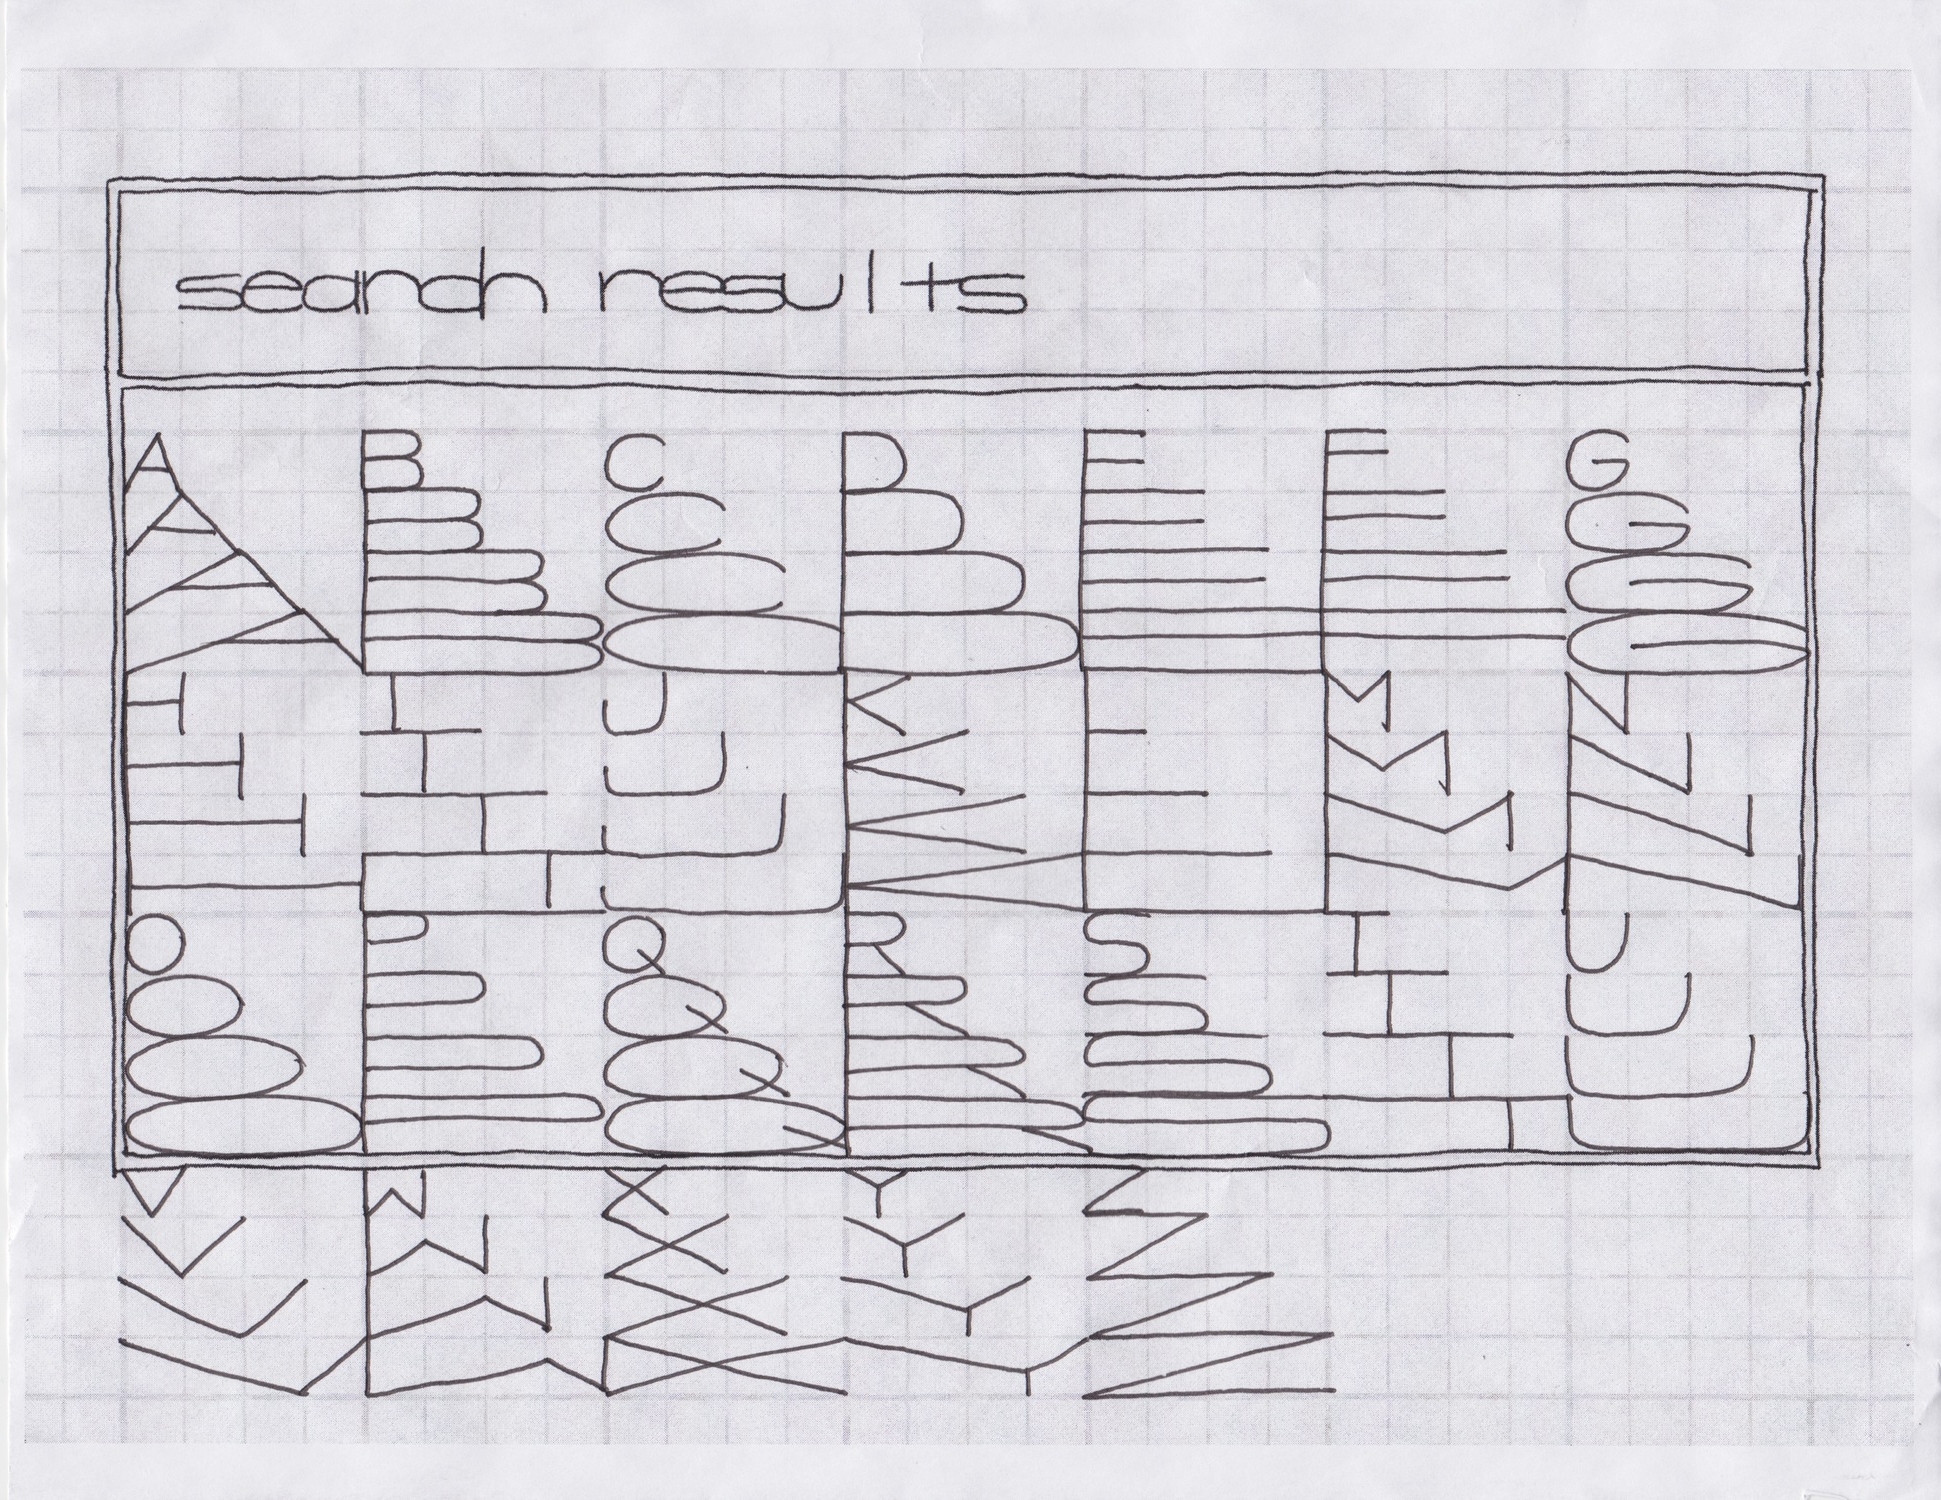 search results
A B C D E F G
A B C D E F G
A B C D E F G
A B C D E F G
H I J K L M N
H I J K L M N
H I J K L M N
H I J K L M N
O P Q R S T U
O P Q R S T U
O P Q R S T U
O P Q R S T U
V W X Y Z
V W X Y Z
V W X Y Z
V W X Y Z